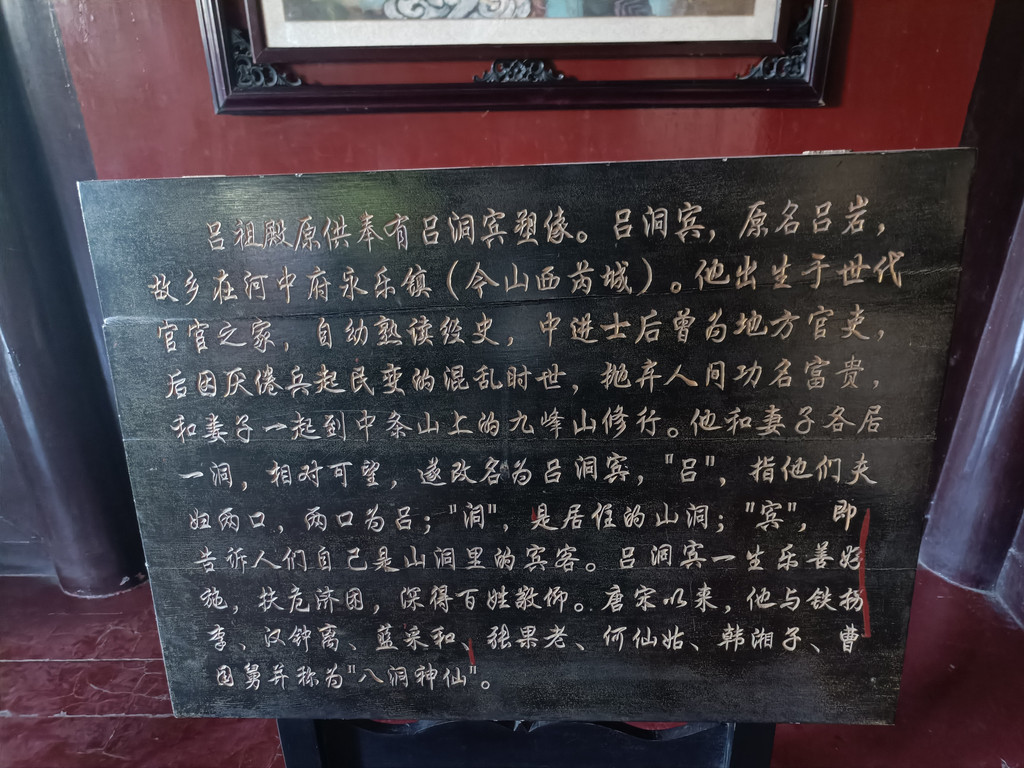 吕祖殿原供奉有吕洞宾塑像。吕洞宾，原名吕岩，
故乡在河中府永乐镇（今山西芮城）。他出生于世代
官宦之家，自幼熟读经史，中进士后曾为地方官吏，
后因厌倦兵起民变的混乱时世，抛弃人间功名富贵，
和妻子一起到中条山上的九峰山修行。他和妻子各居
一洞，相对可望，遂改名为吕洞宾，"吕"，指他们夫
妇两口，两口为吕；"洞"，是居住的山洞；"宾"，即
告诉人们自己是山洞里的宾客。吕洞宾一生乐善好
施，扶危济困，深得百姓敬仰。唐宋以来，他与铁拐
李、汉钟离、蓝采和、张果老、何仙姑、韩湘子、曹
国舅并称为"八洞神仙"。